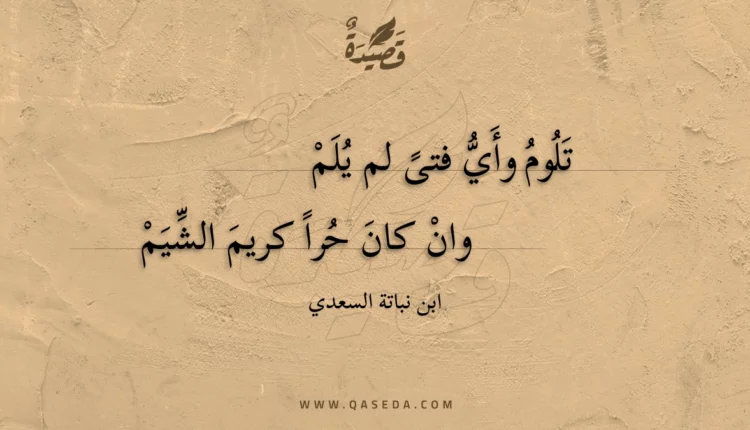 قَصِيْدَةٌ
تَلُومُ وأَيُّ فتىً لم يُلَمْ
وانْ كانَ حُراً كريمَ الشِّيَمْ
ابن نباتة السعدي
WWW.QASEDA.COM